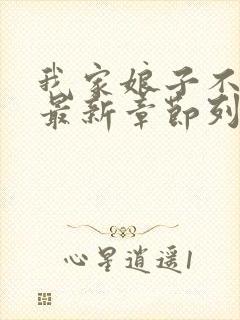 我家娘子不
最新章节列
心星逍遥1